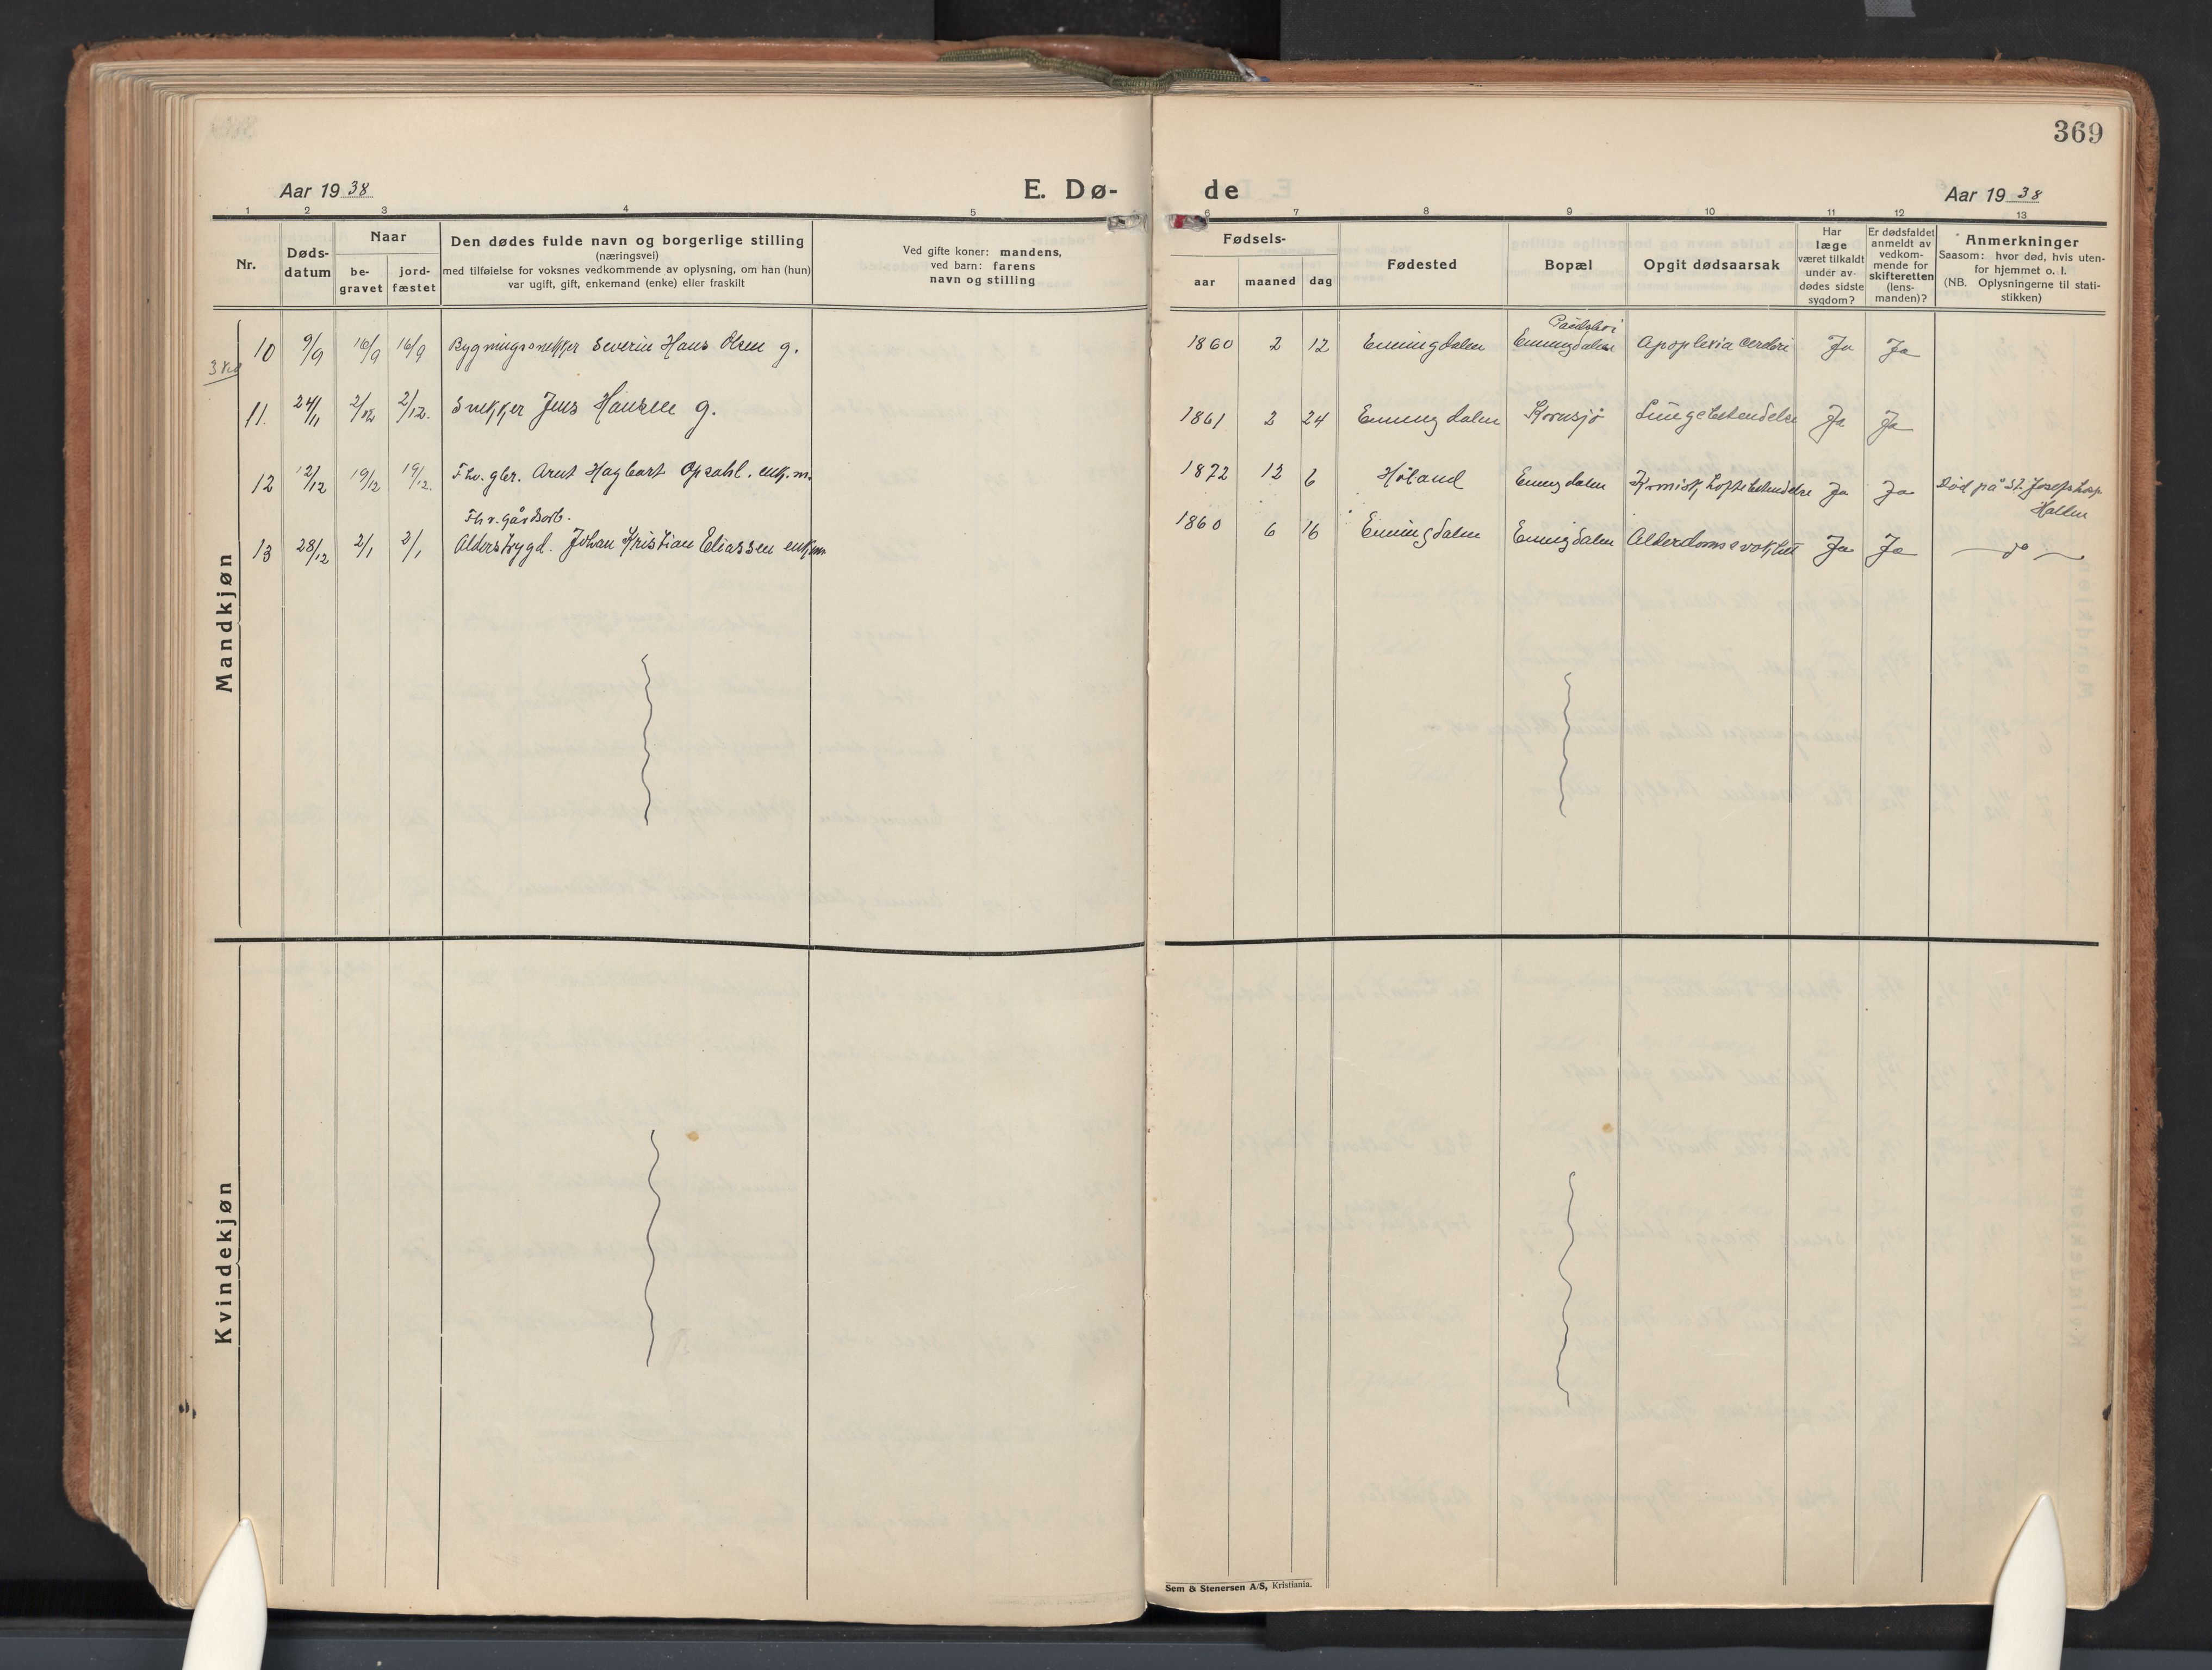 369
Aar 1938
E. Dø-
de
Aar 1938
1 2 3 4 5 6 7 8 9 10 11 12 13
Nr.
Døds-
datum
Naar
be-
gravet
jord-
fæstet
Den dødes fulde navn og borgerlige stilling
(næringsvei)
med tilføielse for voksnes vedkommende av oplysning, om han (hun)
var ugift, gift, enkemand (enke) eller fraskilt
Ved gifte koner: mandens,
ved barn: farens
navn og stilling
Fødsels-
aar maaned dag
Fødested
Bopæl
Opgit dødsaarsak
Har
læge
været tilkaldt
under av-
dødes sidste
sygdom?
Er dødsfaldet
anmeldt av
vedkom-
mende for
skifteretten
(lens-
manden)?
Anmerkninger
Saasom: hvor død, hvis uten-
for hjemmet o. l.
(NB. Oplysningerne til stati-
stikken)
Mandkjøn
10 9/9 16/9 16/9 Bygningssnekker Severin Hans Olsen g. 1860 2 12 Enningdalen Enningdalen Apoplexia cerebri Ja Ja
11. 24/11 2/12 2/12. Snekker Jens Hansen g. 1861 2 24 Enningdalen Kornsjø Lungebetendelse Ja Ja
12 12/12 19/12 19/12. Fhv. gbr. Arnt Hagbart Opsahl. enk.m. 1872 12 6 Høland Enningdalen Kronisk hoftebetendelse Ja Ja Død på St. Josephs hosp
Halden
Fhv. gårdsarb.
13 28/12 2/1 2/1 Alderstrygd. Johan Kristian Eliassen enkem 1860 6 16 Enningdalen Enningdalen Alderdomssvakhet Ja Ja — do —
Kvindekjøn
Sem & Stenersen A/S, Kristiania.